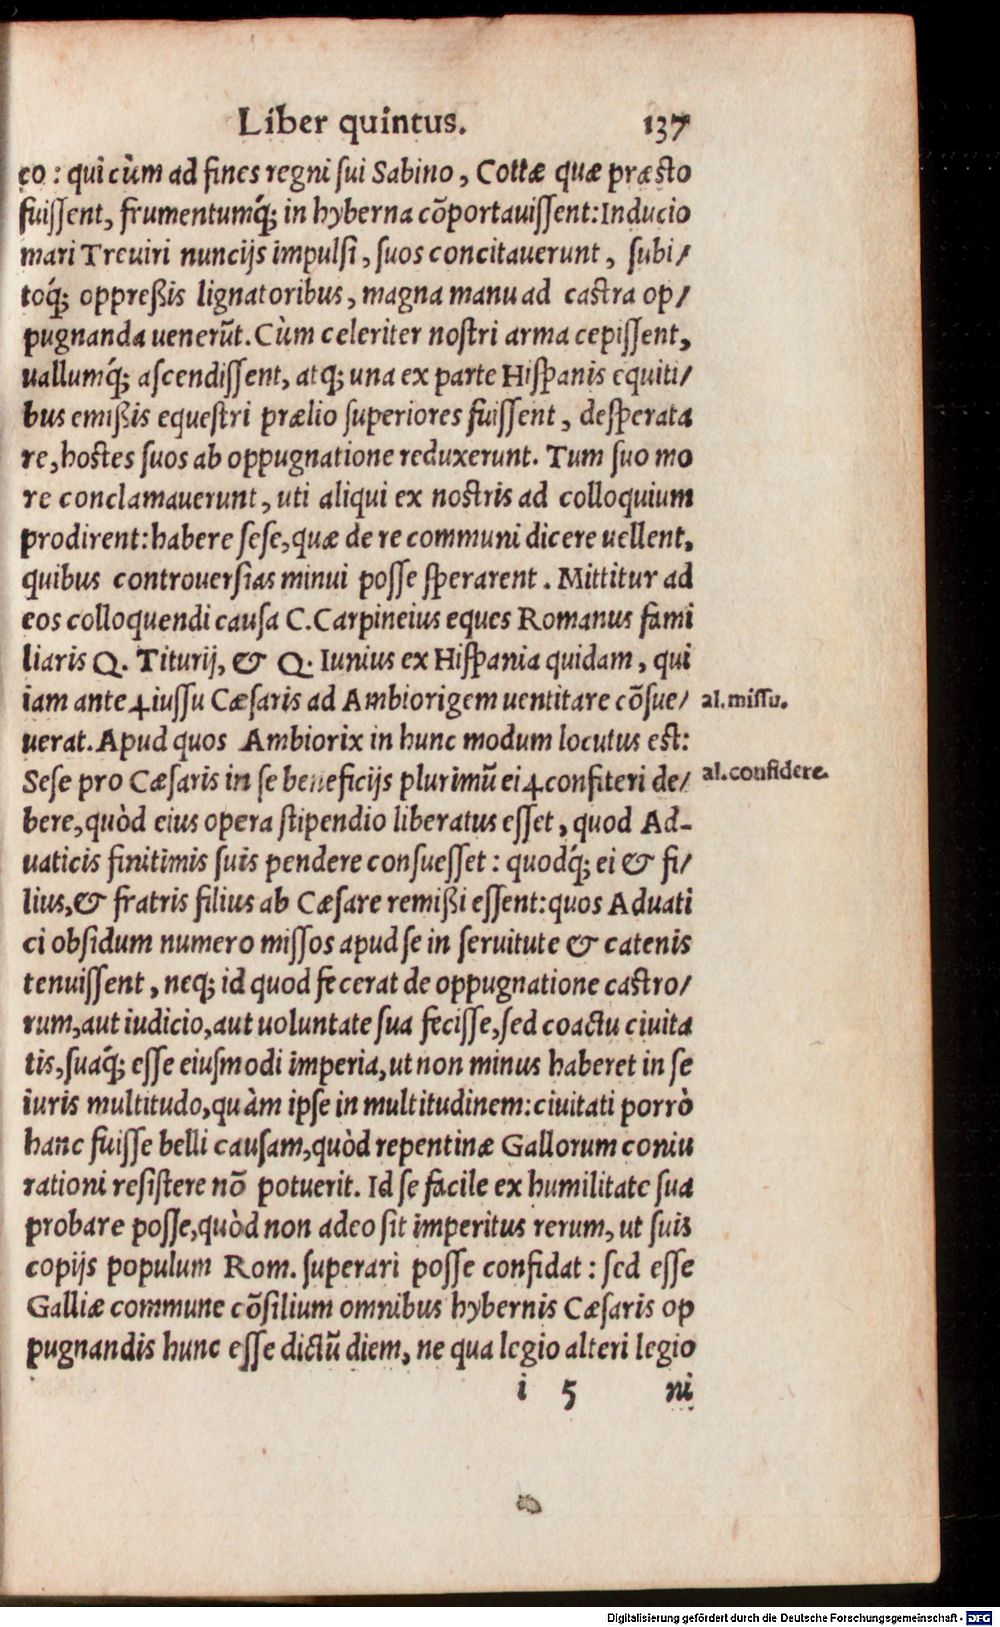 Liber quintus. 137
co: qui cùm ad fines regni sui Sabino, Cottæ quæ præsto
fuissent, frumentumq́; in hyberna cõportauissent: Inducio
mari Treuiri nuncijs impulsi, suos concitauerunt, subi/
toq́; oppreßis lignatoribus, magna manu ad castra op/
pugnanda uenerũt. Cùm celeriter nostri arma cepissent,
uallumq́; ascendissent, atq; una ex parte Hispanis equiti/
bus emißis equestri prælio superiores fuissent, desperata
re, hostes suos ab oppugnatione reduxerunt. Tum suo mo
re conclamauerunt, uti aliqui ex nostris ad colloquium
prodirent: habere sese, quæ de re communi dicere uellent,
quibus controuersias minui posse sperarent. Mittitur ad
eos colloquendi causa C. Carpineius eques Romanus fami
liaris Q. Titurij, & Q. Iunius ex Hispania quidam, qui
iam ante ⸠iussu Cæsaris ad Ambiorigem uentitare cõsue/ al. missu.
uerat. Apud quos Ambiorix in hunc modum locutus est:
Sese pro Cæsaris in se beneficijs plurimũ ei ⸠confiteri de/ al. confidere.
bere, quòd eius opera stipendio liberatus esset, quod Ad-
uaticis finitimis suis pendere consuesset: quodq́; ei & fi/
lius, & fratris filius ab Cæsare remißi essent: quos Aduati
ci obsidum numero missos apud se in seruitute & catenis
tenuissent, neq; id quod fecerat de oppugnatione castro/
rum, aut iudicio, aut uoluntate sua fecisse, sed coactu ciuita
tis, suaq́; esse eiusmodi imperia, ut non minus haberet in se
iuris multitudo, quàm ipse in multitudinem: ciuitati porrò
hanc fuisse belli causam, quòd repentinæ Gallorum coniu
rationi resistere nõ potuerit. Id se facile ex humilitate sua
probare posse, quòd non adeo sit imperitus rerum, ut suis
copijs populum Rom. superari posse confidat: sed esse
Galliæ commune cõsilium omnibus hybernis Cæsaris op
pugnandis hunc esse dictũ diem, ne qua legio alteri legio
i 5 ni
Digitalisierung gefördert durch die Deutsche Forschungsgemeinschaft - DFG